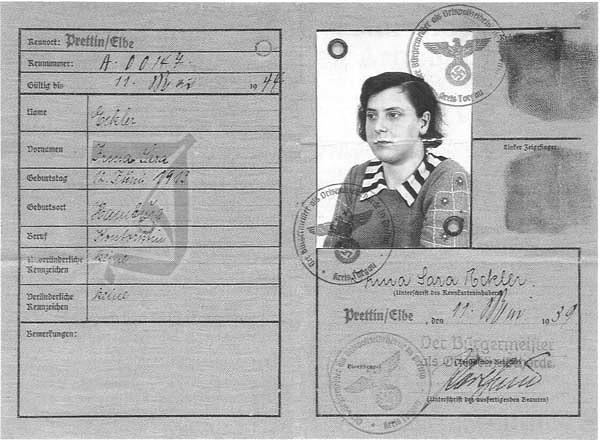 Kennort: Prettin/Elbe
Kennummer: A 00147
Gültig bis 11. Mai 1944
Name Eckler
Vornamen Irma Sara
Geburtstag 12. Juni 1913
Geburtsort Hamburg
Beruf Kontoristin
Unveränderliche Kennzeichen keine
Veränderliche Kennzeichen keine
Bemerkungen:
Der Bürgermeister als Ortspolizeibehörde
Kreis Torgau
Linker Zeigefinger
Der Bürgermeister als Ortspolizeibehörde
Kreis Torgau
Irma Sara Eckler
(Unterschrift des Kennkarteninhabers)
Prettin/Elbe, den 11. Mai 1939
Der Bürgermeister
als Ortspolizeibehörde.
Dienststempel
(Unterschrift des ausfertigenden Beamten)